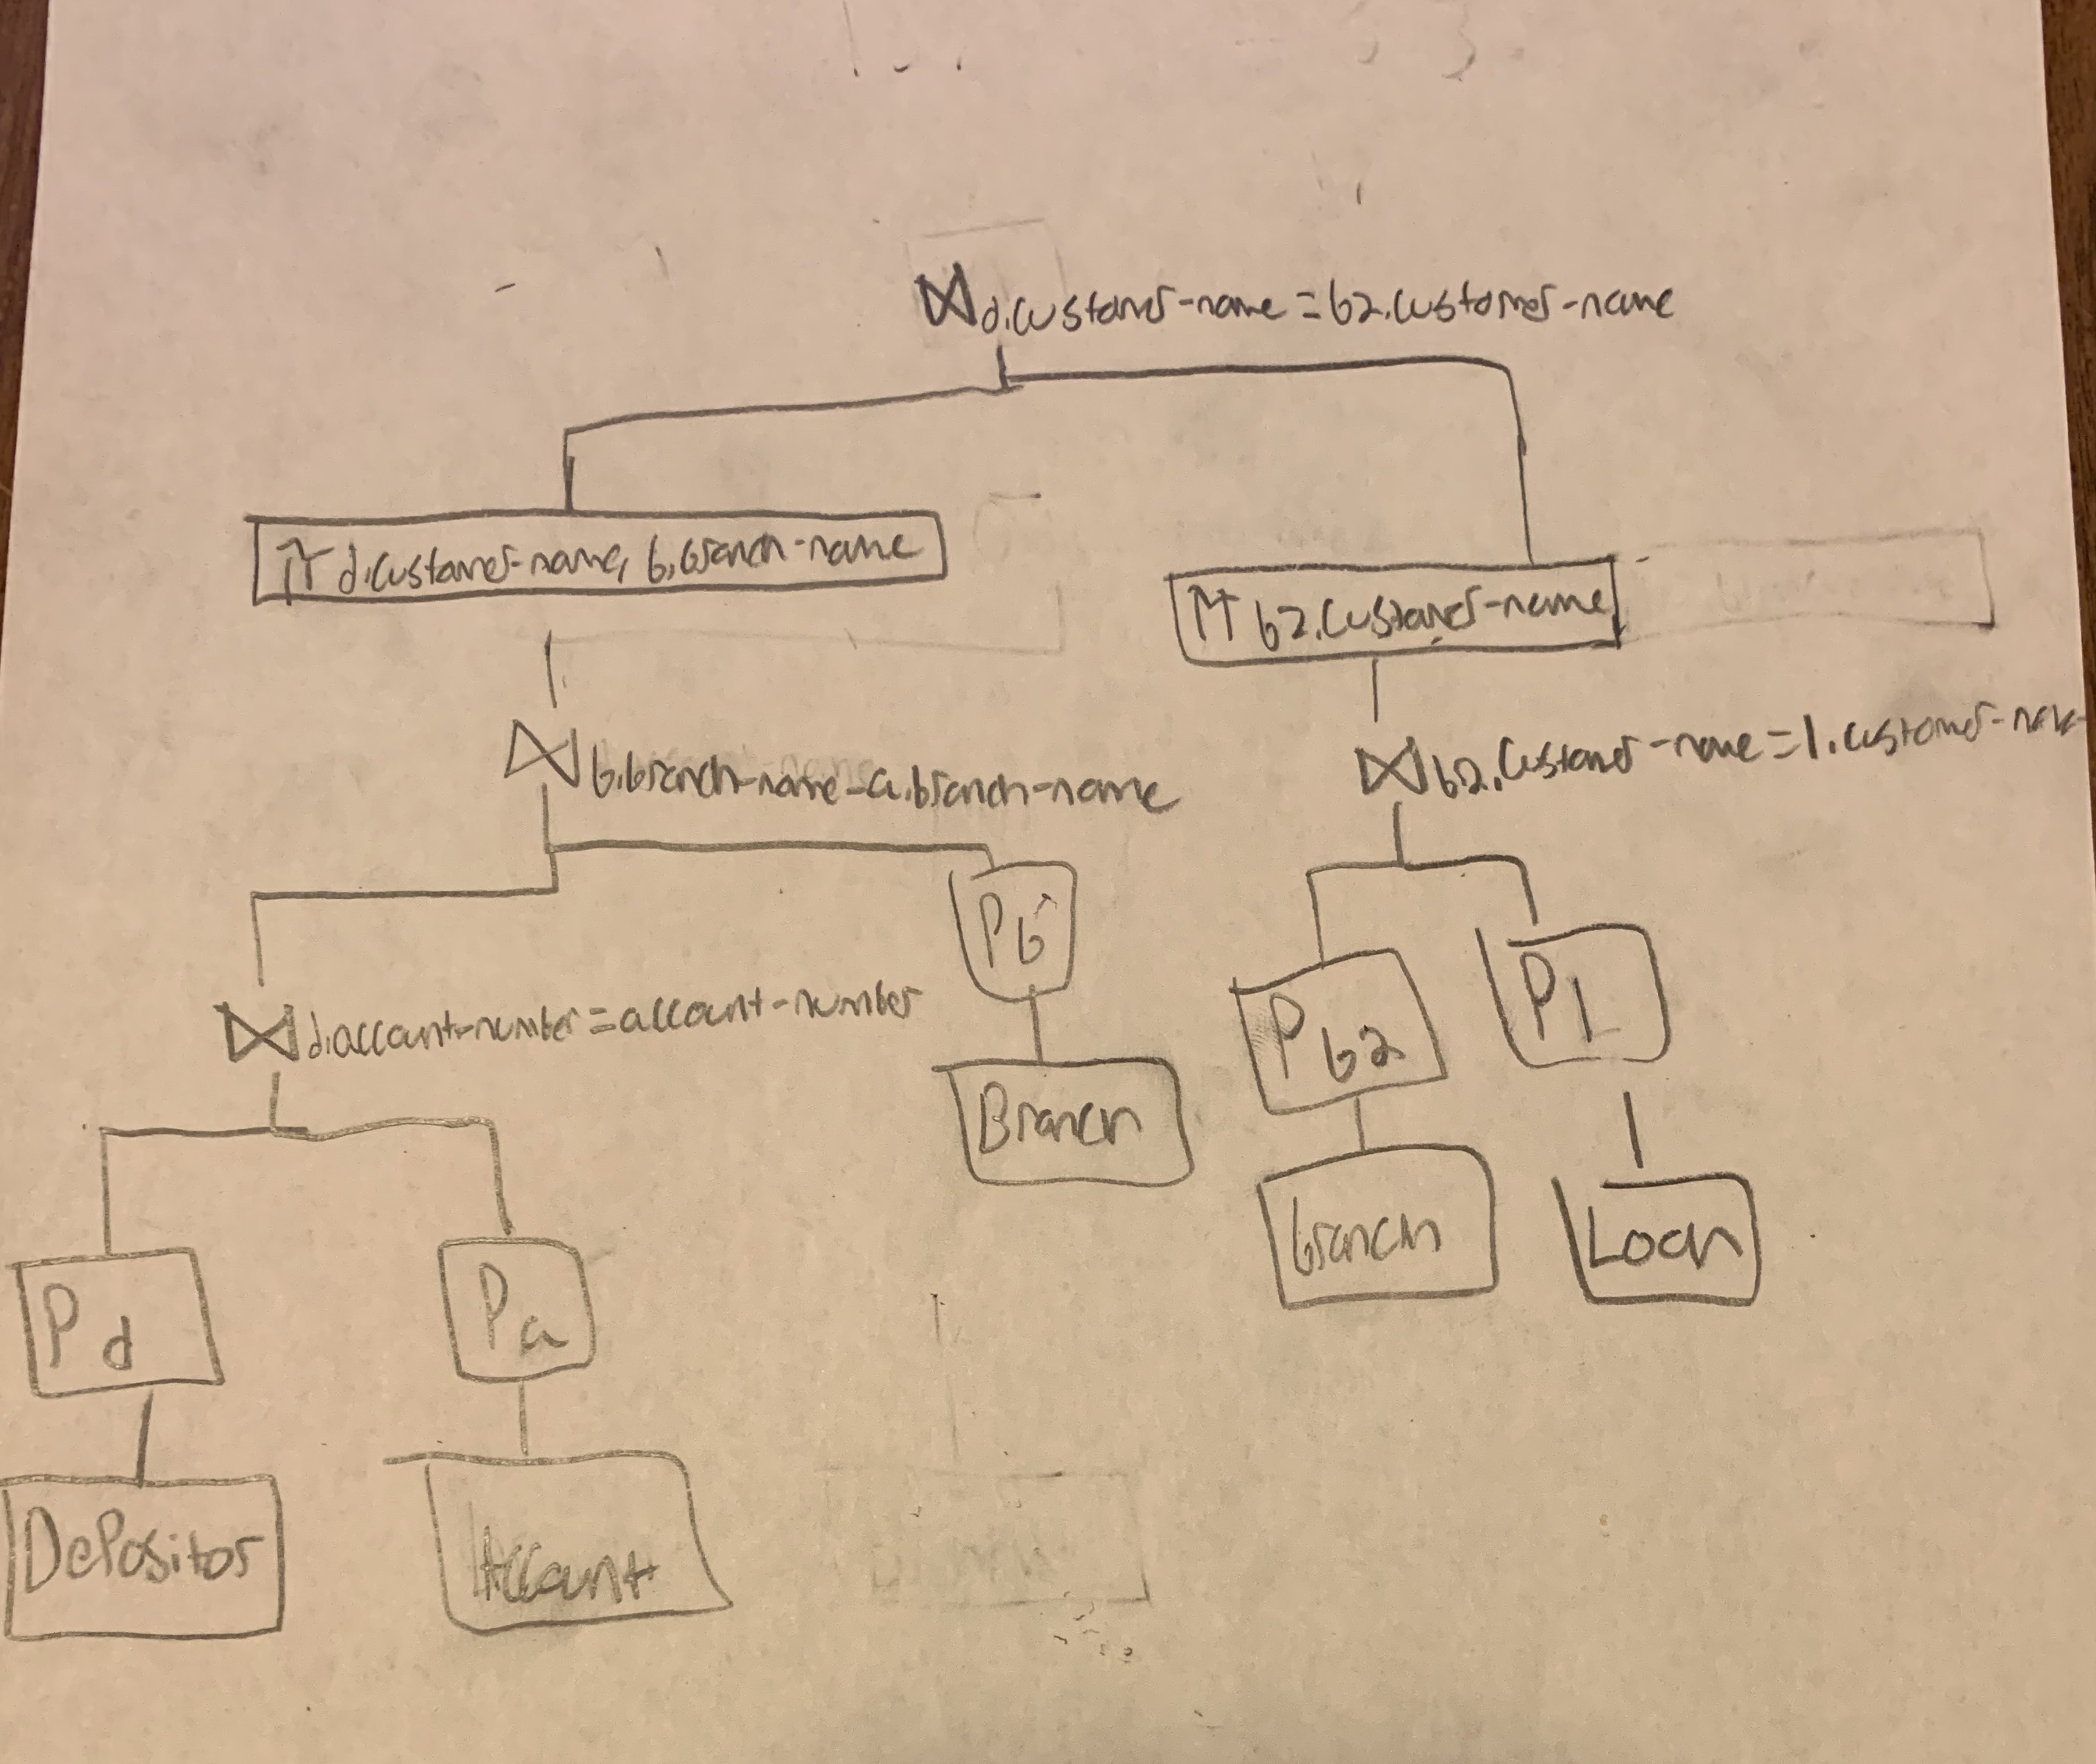 ⋈ d.customer-name = b2.customer-name
π d.customer-name, b.branch-name
π b2.customer-name
⋈ b.branch-name = a.branch-name
⋈ b2.customer-name = l.customer-name
Pb
Pb2
Pl
⋈ d.account-number = account-number
Branch
branch
Loan
Pd
Pa
Depositor
Account